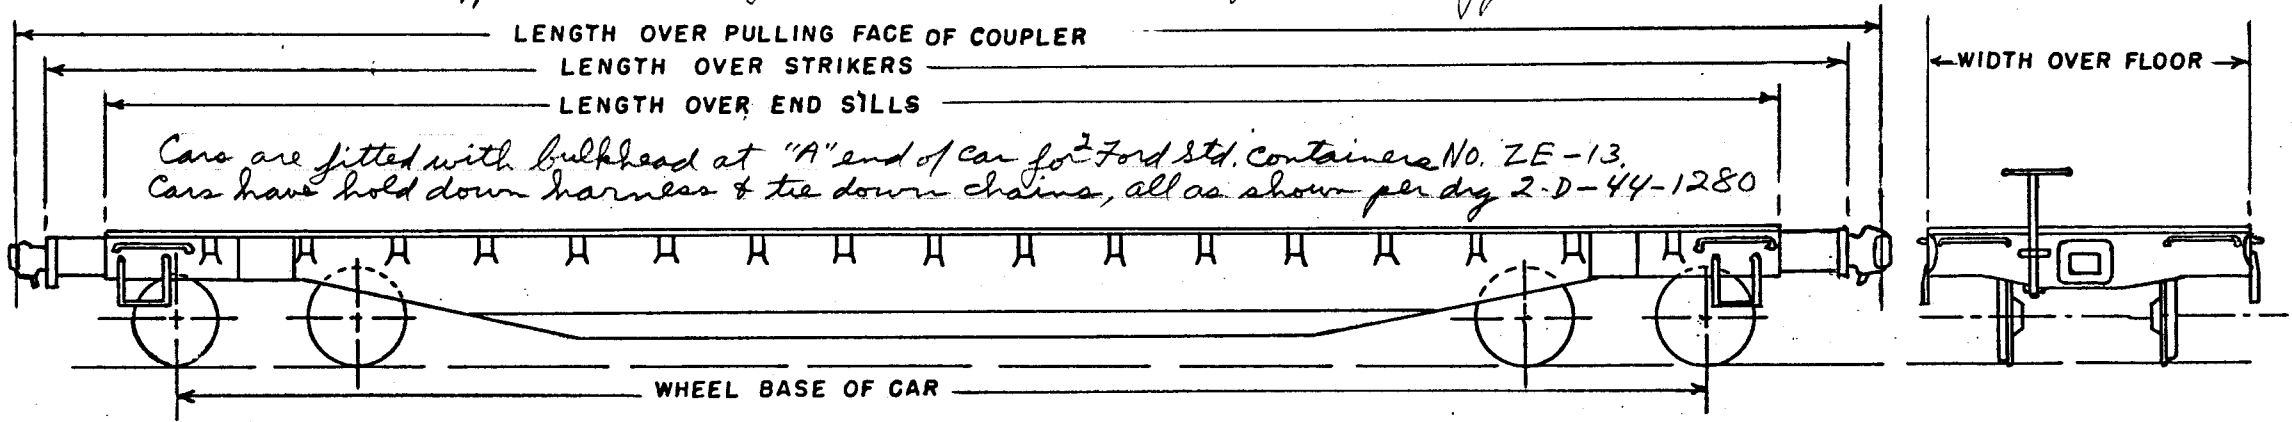 LENGTH OVER PULLING FACE OF COUPLER
LENGTH OVER STRIKERS
WIDTH OVER FLOOR
LENGTH OVER END SILLS
Cars are fitted with bulkhead at "A" end of car for 2 Ford Std. Containers No. ZE-13.
Cars have hold down harness & tie down chains, all as shown per drg 2-D-44-1280
WHEEL BASE OF CAR